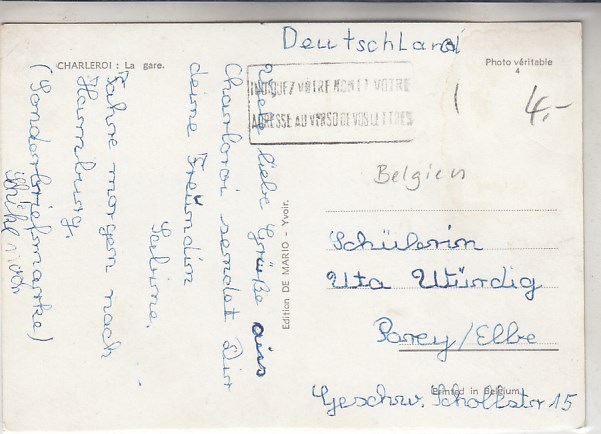 Deutschland
CHARLEROI : La gare.
Photo véritable
4
INDIQUEZ VOTRE NOM ET VOTRE
ADRESSE AU VERSO DE VOS LETTRES
4.-
Belgien
Viele liebe Grüße aus
Charleroi sendet Dir
deine Freundin
Sabine.
Fahre morgen nach
Hamburg.
(Sonderbriefmarke)
Edition DE MARIO - Yvoir.
Schülerin
Uta Würdig
Parey/Elbe
Printed in Belgium
Geschw. Schollstr 15